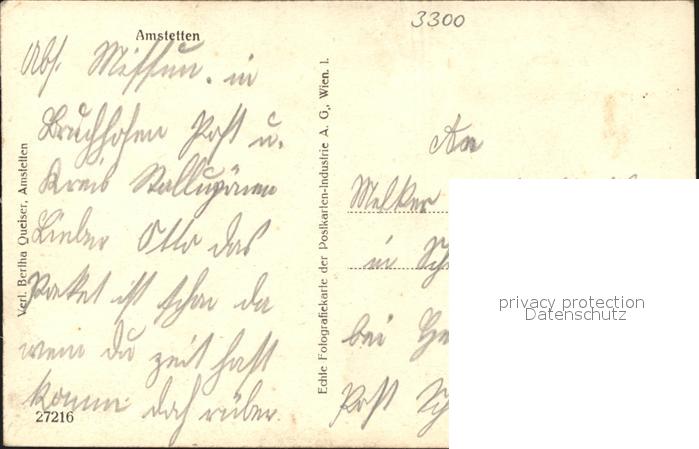 3300
Amstetten
Abs. in
Bruchhofen Post u.
Kreis Stallupönen
Lieber Otto das
Paket ist schon da
wenn du zeit hast
komm doch rüber.
27216
Verl. Bertha Queiser, Amstetten
Echte Fotografiekarte der Postkarten-Industrie A. G., Wien. I.
An
Melker
in
bei
Post
privacy protection
Datenschutz